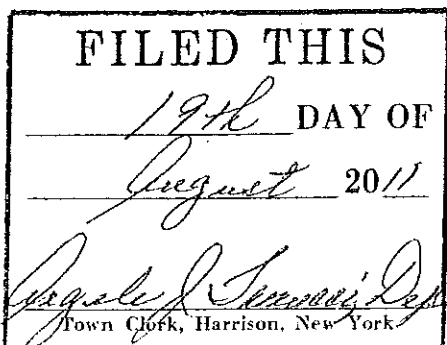 FILED THIS
19th DAY OF
August 2011
J
Town Clerk, Harrison, New York